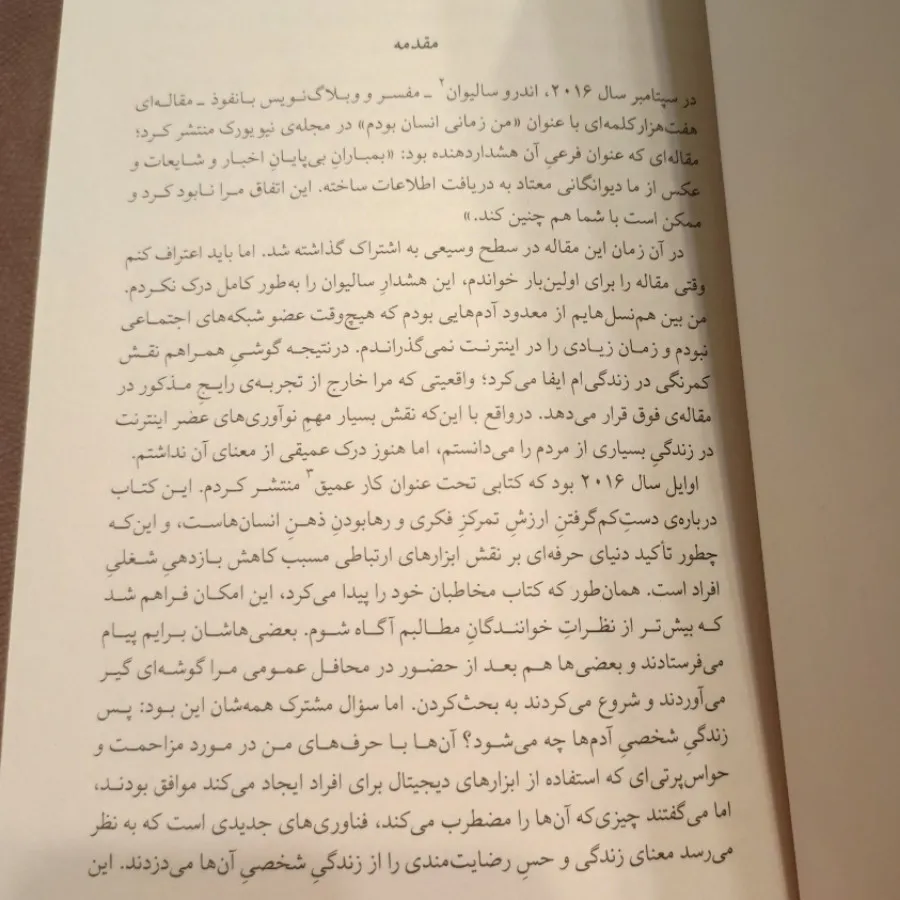 مقدمه
در سپتامبر سال ۲۰۱۶، اندرو سالیوان۲ ـ مفسر و وبلاگ‌نویس بانفوذ ـ مقاله‌ای
هفت‌هزارکلمه‌ای با عنوان «من زمانی انسان بودم» در مجله‌ی نیویورک منتشر کرد؛
مقاله‌ای که عنوان فرعیِ آن هشداردهنده بود: «بمبارانِ بی‌پایانِ اخبار و شایعات و
عکس از ما دیوانگانی معتاد به دریافت اطلاعات ساخته. این اتفاق مرا نابود کرد و
ممکن است با شما هم چنین کند.»
در آن زمان این مقاله در سطح وسیعی به اشتراک گذاشته شد. اما باید اعتراف کنم
وقتی مقاله را برای اولین‌بار خواندم، این هشدارِ سالیوان را به‌طور کامل درک نکردم.
من بین هم‌نسل‌هایم از معدود آدم‌هایی بودم که هیچ‌وقت عضو شبکه‌های اجتماعی
نبودم و زمان زیادی را در اینترنت نمی‌گذراندم. درنتیجه گوشیِ همراهم نقش
کمرنگی در زندگی‌ام ایفا می‌کرد؛ واقعیتی که مرا خارج از تجربه‌ی رایجِ مذکور در
مقاله‌ی فوق قرار می‌دهد. درواقع با این‌که نقش بسیار مهمِ نوآوری‌های عضر اینترنت
در زندگیِ بسیاری از مردم را می‌دانستم، اما هنوز درک عمیقی از معنای آن نداشتم.
اوایل سال ۲۰۱۶ بود که کتابی تحت عنوان کار عمیق۳ منتشر کردم. این کتاب
درباره‌ی دستِ‌کم‌گرفتنِ ارزشِ تمرکزِ فکری و رهابودنِ ذهنِ انسان‌هاست، و این‌که
چطور تأکید دنیای حرفه‌ای بر نقش ابزارهای ارتباطی مسبب کاهش بازدهیِ شغلیِ
افراد است. همان‌طور که کتاب مخاطبان خود را پیدا می‌کرد، این امکان فراهم شد
که بیش‌تر از نظراتِ خوانندگانِ مطالبم آگاه شوم. بعضی‌هاشان برایم پیام
می‌فرستادند و بعضی‌ها هم بعد از حضور در محافل عمومی مرا گوشه‌ای گیر
می‌آوردند و شروع می‌کردند به بحث‌کردن. اما سؤال مشترک همه‌شان این بود: پس
زندگیِ شخصیِ آدم‌ها چه می‌شود؟ آن‌ها با حرف‌های من در مورد مزاحمت و
حواس‌پرتی‌ای که استفاده از ابزارهای دیجیتال برای افراد ایجاد می‌کند موافق بودند،
اما می‌گفتند چیزی‌که آن‌ها را مضطرب می‌کند، فناوری‌های جدیدی است که به نظر
می‌رسد معنای زندگی و حسِ رضایت‌مندی را از زندگیِ شخصیِ آن‌ها می‌دزدند. این